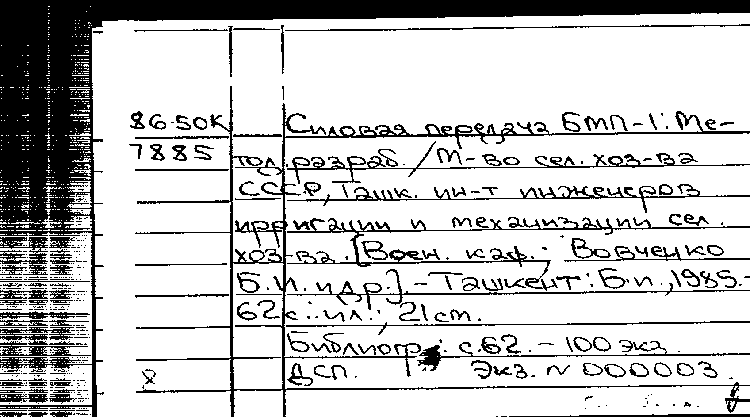 86-50К Силовая передача БМП-1: Ме-
7885 тод. разраб. / М-во сел. хоз-ва
СССР, Ташк. ин-т инженеров
ирригации и механизации сел.
хоз-ва. [Воен. каф.; Вовченко
Б.И. и др.]. - Ташкент: Б.и., 1985. -
62 с.: ил.; 21 cm.
Библиогр.: с. 62. - 100 экз.
ДСП. Экз. N 000003.